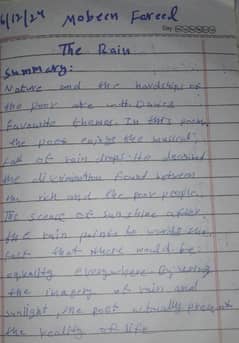 6/12/24 Mobeen Fareed
Day
The Rain
Summary:
Nature and the hardships of
the poor are with Davies
favourite themes. In this poem,
the poet enjoys the musical
fall of rain drops. He
the discrimination found between
the rich and the poor people.
The scene of sun shine after
the rain points to words the
fact that there would be
equality everywhere. By using
the imagery of rain and
sunlight, the poet actually present
the reality of life